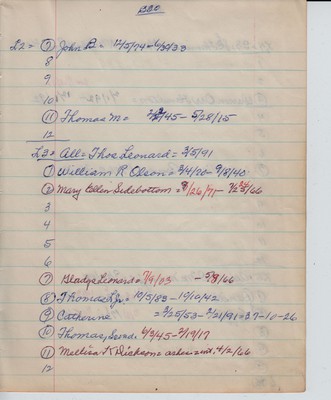 L2 = ⑦ John B. = 12/5/74 = 6/29/33
8
9
10
⑪ Thomas M = 45 - 5/28/15
12
L3 = All = Thos Leonard = 3/5/91
① William R Olson = 2/4/20 - 9/8/40
② Mary Ellen Sidebottom = 8/26/71 - /66
3
4
5
6
⑦ Gladys Leonard = 7/9/03 - 5/9/66
⑧ Thomas L Jr. = 10/5/83 - 10/10/42
⑨ Catherine = 2/25/53 - 2/21/91 = 37-10-26
⑩ Thomas, Sr = 6/3/45 - 2/19/17
⑪ Mellisa K Dickson = ashes = int. 4/2/66
12